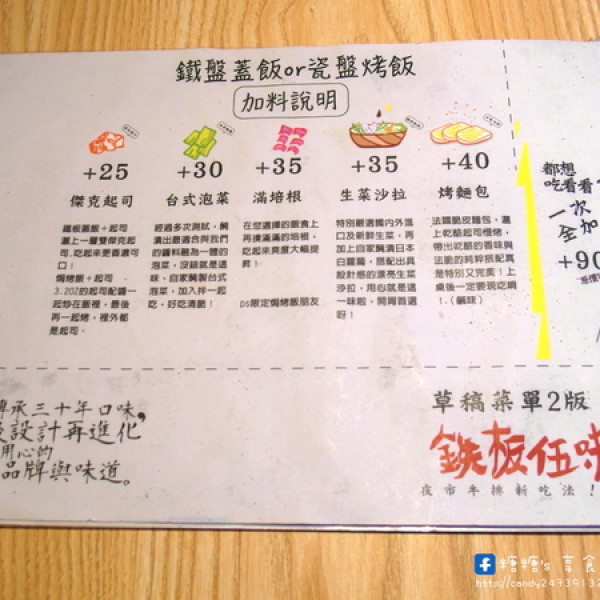 鐵盤蓋飯or瓷盤烤飯
加料說明
+25
傑克起司
鐵板蓋飯+起司
灑上一層雙傑克起
司,吃起來更香濃可
口!
焗烤飯+起司 .
3.2OZ的起司配醬一
起炒在飯裡,最後
再一起烤,裡外都
是起司.
+30
台式泡菜
經過多次測試,醃
漬出最適合與我們
的醬料融為一體的
泡菜,沒錯就是這
味,自家醃製台式
泡菜,加入拌一起
吃,好吃清脆!
+35
滿培根
在您選擇的飯食上
再擺滿滿的培根,
吃起來口感大幅提
昇!
DS限定焗烤飯朋友
+35
生菜沙拉
特別嚴選國內外進
口及新鮮生菜,再
加上自家醃漬日本
白蘿蔔,搭配出具
設計感的漂亮生菜
沙拉,用心就是這
一味啦,開胃首選
呀!
+40
烤麵包
法國脆皮麵包,灑
上乾酪起司慢烤,
帶出吃酪的香味與
法脆的純粹搭配真
是特別又完美!上
桌後一定要現吃唷
!.(鹹味)
都想
吃看看?
一次
全加
+90
傳承三十年口味,
設計再進化
用心的
品牌與味道。
草稿菜單2版
鉄板伍味
夜市牛排新吃法!
糖糖's 享食
http://candy24739132